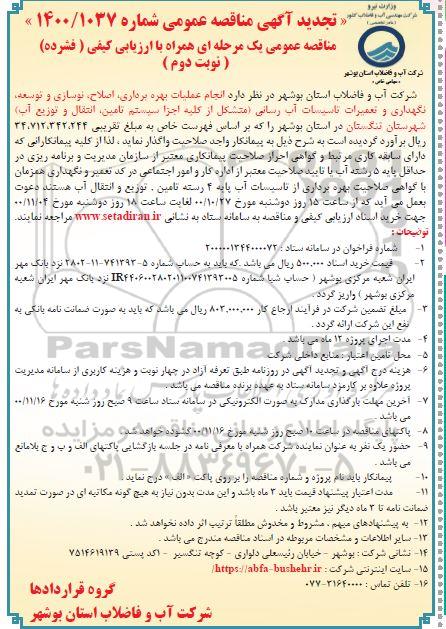 وزارت نیرو
شرکت مهندسی آب و فاضلاب کشور
شرکت آب و فاضلاب استان بوشهر
« تجدید آگهی مناقصه عمومی شماره ۱۴۰۰/۱۰۳۷ »
مناقصه عمومی یک مرحله ای همراه با ارزیابی کیفی ( فشرده)
( نوبت دوم )
شرکت آب و فاضلاب استان بوشهر در نظر دارد انجام عملیات بهره برداری، اصلاح، نوسازی و توسعه،
نگهداری و تعمیرات تاسیسات آب رسانی (متشکل از کلیه اجزا سیستم تامین، انتقال و توزیع آب)
شهرستان تنگستان در استان بوشهر را که بر اساس فهرست خاص به مبلغ تقریبی ۳۴.۷۱۲.۳۴۲.۲۴۴
ریال برآورد گردیده است به شرح ذیل به پیمانکار واجد صلاحیت واگذار نماید ، لذا از کلیه پیمانکارانی که
دارای سابقه کاری مرتبط و گواهی احراز صلاحیت پیمانکاری معتبر از سازمان مدیریت و برنامه ریزی در
حداقل پایه ۵ رشته آب یا تایید صلاحیت معتبر از اداره کار و امور اجتماعی در کد تعمیر و نگهداری همزمان
با گواهی صلاحیت بهره برداری از تاسیسات آب پایه ۴ رسته تامین ، توزیع و انتقال آب هستند دعوت
بعمل می آید که از ساعت ۱۵ روز دوشنبه مورخ ۰۰/۱۰/۲۷ لغایت ساعت ۱۸ روز دوشنبه مورخ ۰۰/۱۱/۰۴
جهت خرید اسناد ارزیابی کیفی و مناقصه به سامانه ستاد به نشانی www.setadiran.ir مراجعه نمایند.
توضیحات :
۱- شماره فراخوان در سامانه ستاد : ۲۰۰۰۰۰۱۳۴۴۰۰۰۰۷۲
۲- قیمت خرید اسناد ۵۰۰.۰۰۰ ریال می باشد .که باید به حساب شماره ۵-۷۴۱۳۹۲-۱۱-۲۸۰۲ نزد بانک مهر
ایران شعبه مرکزی بوشهر ( حساب شبا شماره IR۴۴۰۶۰۰۲۸۰۲۰۱۱۰۰۷۴۱۳۹۲۰۰۵ نزد بانک مهر ایران شعبه
مرکزی بوشهر ) واریز گردد .
۳- مبلغ تضمین شرکت در فرآیند ارجاع کار ۸۰۳.۰۰۰.۰۰۰ ریال می باشد که باید به صورت ضمانت نامه بانکی به
نفع این شرکت ارائه گردد .
۴- مدت اجرای پروژه ۱۲ ماه می باشد .
۵- محل تامین اعتبار : منابع داخلی شرکت
۶- هزینه درج آگهی و تجدید آگهی در روزنامه طبق تعرفه آزاد در چهار نوبت و هزینه کاربری از سامانه مدیریت
پروژه علاوه بر کارمزد سامانه ستاد به عهده برنده مناقصه می باشد .
۷- آخرین مهلت بارگذاری مدارک به صورت الکترونیکی در سامانه ستاد ساعت ۹ صبح روز شنبه مورخ ۰۰/۱۱/۱۶
می باشد .
۸- پاکتهای مناقصه در ساعت ۱۰ صبح روز شنبه مورخ ۰۰/۱۱/۱۶ گشوده خواهد شد.
۹- حضور یک نفر به عنوان نماینده شرکت همراه با معرفی نامه در جلسه بازگشایی پاکتهای الف و ب و ج بلامانع
می باشد .
۱۰- پیمانکار باید نام پروژه و شماره مناقصه را بر روی پاکت « الف » درج نماید .
۱۱- مدت اعتبار پیشنهاد قیمت باید ۳ ماه باشد و این مدت بدون نیاز به هیچ گونه مکاتبه ای در صورت تمدید
ضمانت نامه تا ۳ ماه دیگر نیز معتبر باشد .
۱۲- به پیشنهادهای مبهم ، مشروط و مخدوش مطلقاً ترتیب اثر داده نخواهد شد .
۱۳- سایر اطلاعات و مشخصات مربوطه در اسناد مناقصه مندرج می باشد .
۱۴- نشانی شرکت : بوشهر - خیابان رئیسعلی دلواری - کوچه تنگسیر - کد پستی ۷۵۱۴۶۱۹۱۳۹
۱۵- سایت اینترنتی شرکت : https://abfa-bushehr.ir/
۱۶- تلفن تماس : ۳۱۶۴۰۰۰۰-۰۷۷
گروه قراردادها
شرکت آب و فاضلاب استان بوشهر
ParsNamadData
۰۲۱-۸۸۳۴۹۶۷۰-۵